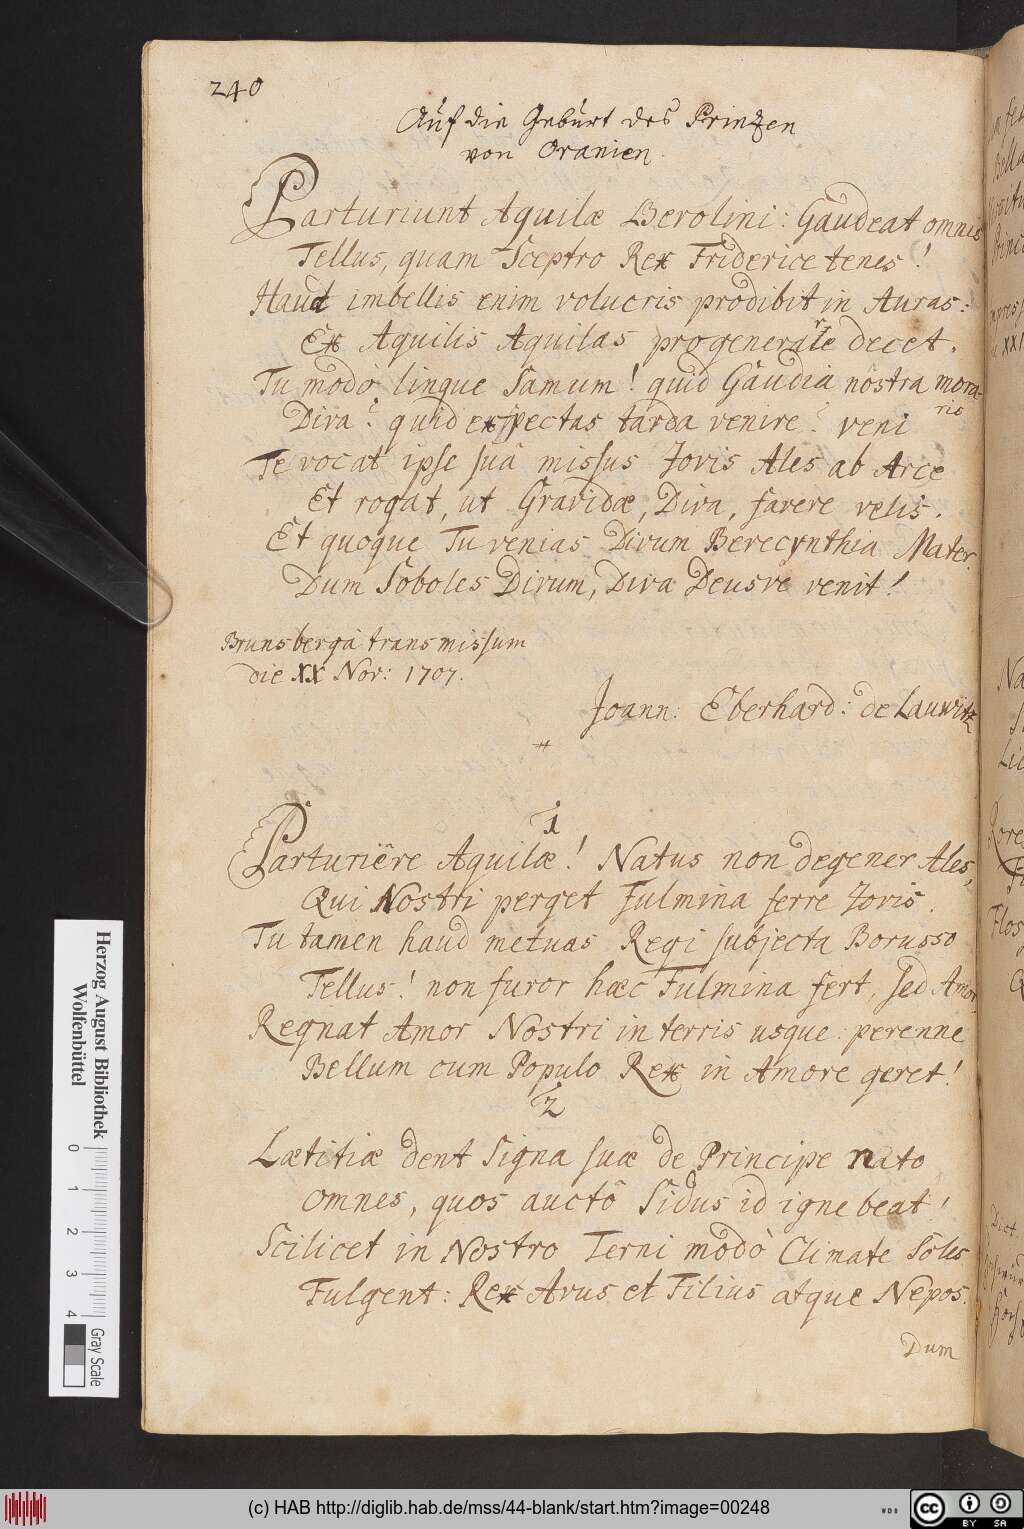 240
Auf die Geburt des Prinzen
von Oranien.
Parturiunt Aquilæ Berolini: Gaudeat omnis
Tellus, quam Sceptro Rex Friderice tenes!
Haud imbellis enim volucris prodibit in Auras:
Ex Aquilis Aquilas progenerare decet.
Tu modò linque Samum! quid Gaudia nostra mora-
ris
Diva? quid exspectas tarda venire? veni
Te vocat ipse suâ missus Jovis Ales ab Arce
Et rogat, ut Gravidæ, Diva, favere velis.
Et quoque Tu venias Divum Berecynthia Mater.
Dum Soboles Divum, Diva Deusve venit!
Brunsbergâ transmissum
die XX Nov: 1707.
Joann: Eberhard: de Lauwitz
1
Parturiêre Aquilæ! Natus non degener Ales,
Qui Nostri perget Fulmina ferre Jovis.
Tu tamen haud metuas Regi subjecta Borusso
Tellus! non furor hæc Fulmina fert, sed Amor
Regnat Amor Nostri in terris usque perenne
Bellum cum Populo Rex in Amore geret!
2
Lætitiæ dent Signa suæ de Principe nato
omnes, quos auctô Sidus id igne beat!
Scilicet in Nostro Terni modò Climate Soles
Fulgent: Rex Avus et Filius atque Nepos.
Dum
Herzog August Bibliothek
Wolfenbüttel
0 1 2 3 4
Gray Scale
(c) HAB http://diglib.hab.de/mss/44-blank/start.htm?image=00248
WDB
cc
BY SA